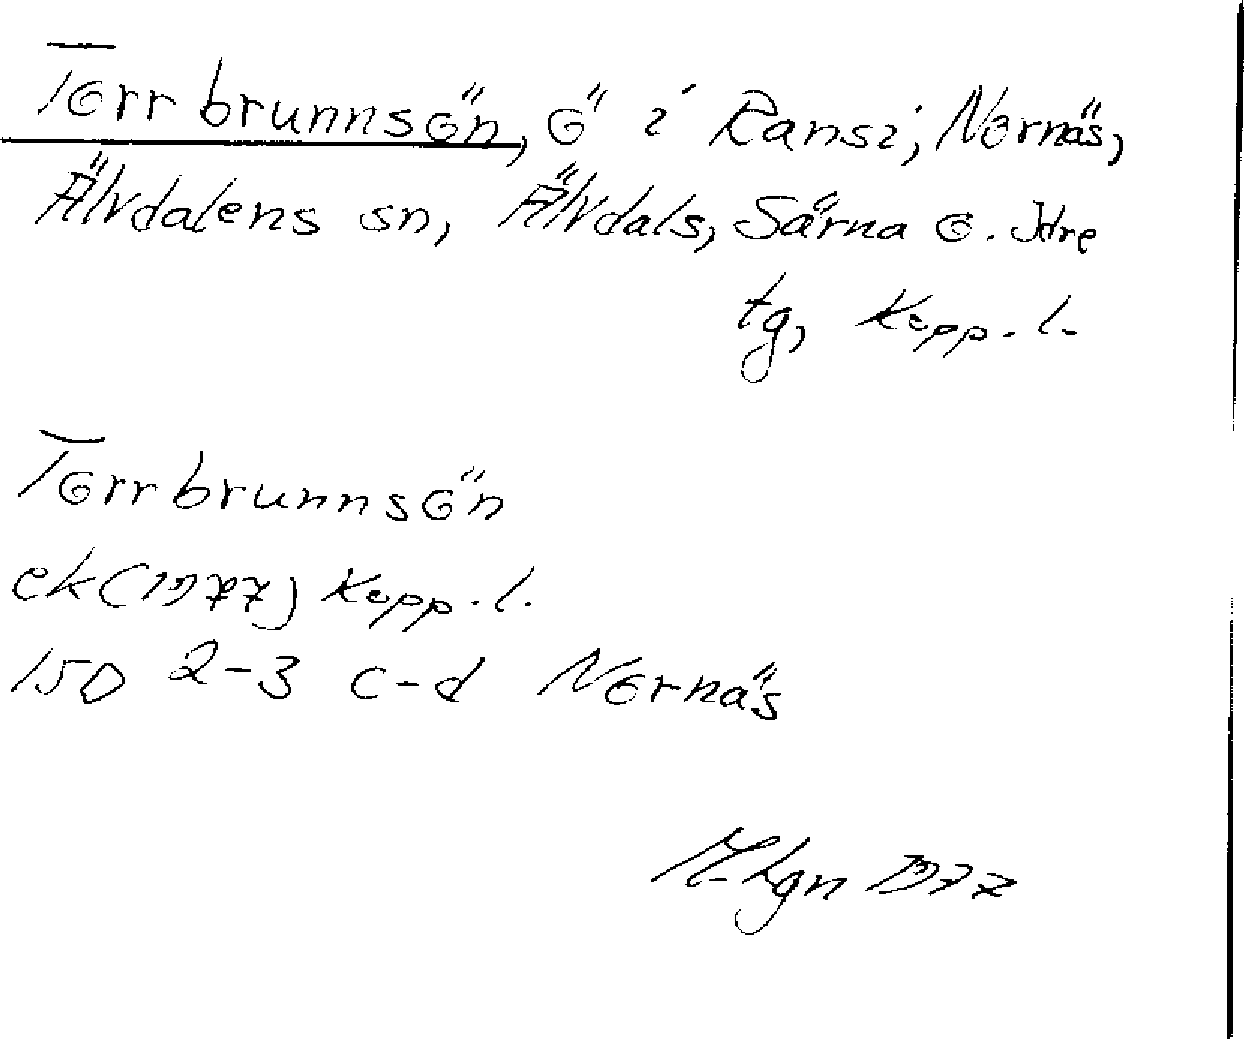 Torrbrunnsön, ö i Ransi, Nornäs,
Älvdalens sn, Älvdals, Särna o. Idre
tg, Kopp. l.
Torrbrunnsön
ek (1977) Kopp. l.
15D 2-3 c-d Nornäs
1977